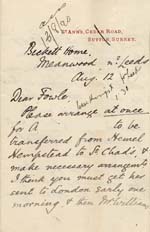 12/8/20
St Ann's, Cedar Road,
Sutton, Surrey.
Beckett Home,
Meanwood nr Leeds
Aug. 12
Dear Fowle
Please arrange at once
for A to be
transferred from Hemel
Hempstead to St Chad's, &
make necessary arrangemts
I think you must get her
sent to London early one
morning & then Mr William